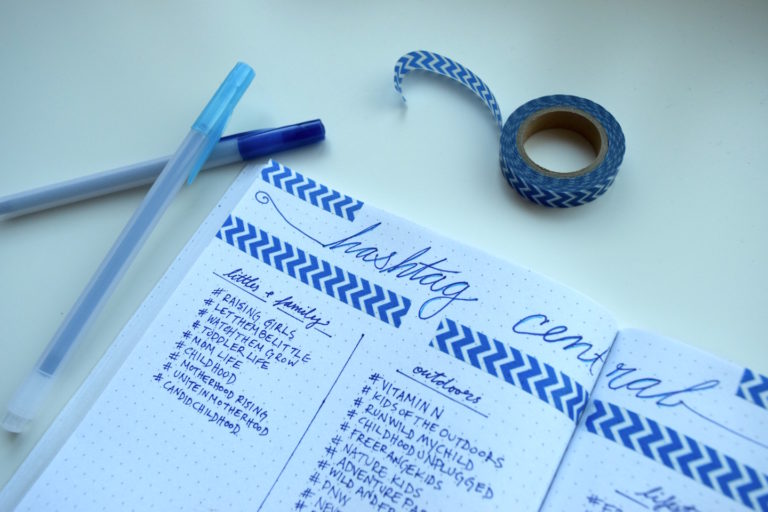 hashtag central
littles + family
# RAISING GIRLS
# LETTHEMBELITTLE
# WATCHTHEM GROW
# TODDLER LIFE
# MOM LIFE
# CHILDHOOD
# MOTHERHOOD RISING
# UNITEINMOTHERHOOD
# CANDIDCHILDHOOD
outdoors
# VITAMIN N
# KIDS OF THE OUTDOORS
# RUNWILD MYCHILD
# CHILDHOOD UNPLUGGED
# FREERANGEKIDS
# NATURE KIDS
# ADVENTURE
# WILD AND
# PNW